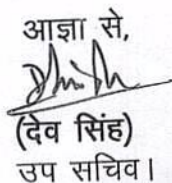 आज्ञा से,
(देव सिंह)
उप सचिव।